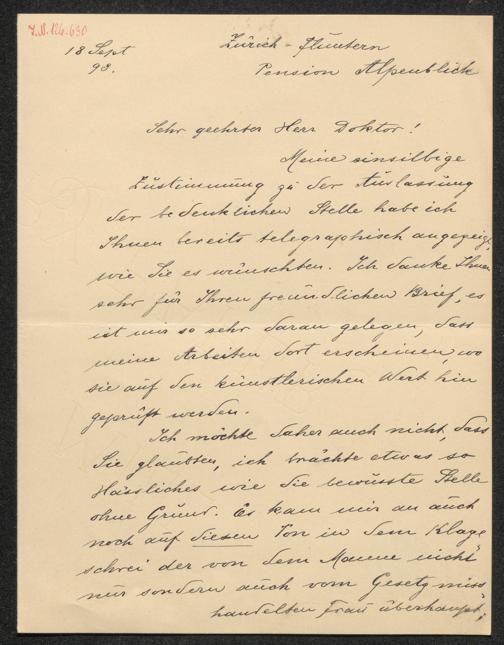 J.N. 126.630
18 Sept
98.
Zürich-Fluntern
Pension Alpenblick
Sehr geehrter Herr Doktor!
Meine einsilbige
Zustimmung zu der Auslassung
der bedenklichen Stelle habe ich
Ihnen bereits telegraphisch angezeigt,
wie Sie es wünschten. Ich danke Ihnen
sehr für Ihren freundlichen Brief, es
ist mir so sehr daran gelegen, dass
meine Arbeiten dort erscheinen, wo
sie auf den künstlerischen Wert hin
geprüft werden.
Ich möchte daher auch nicht, dass
Sie glaubten, ich brächte etwas so
Hässliches wie die bewusste Stelle
ohne Grund. Es kam mir an auch
noch auf diesen Ton in dem Klage
schrei der von dem Manne nicht
nur sondern auch vom Gesetz miss
handelten Frau überhaupt;